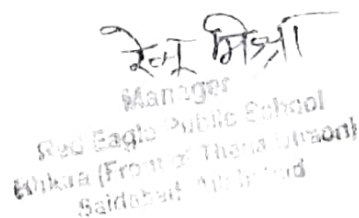 रेनू मिश्रा
Manager
Red Eagle Public School
(Front of Thana Utraon)
Saidabad Allahabad